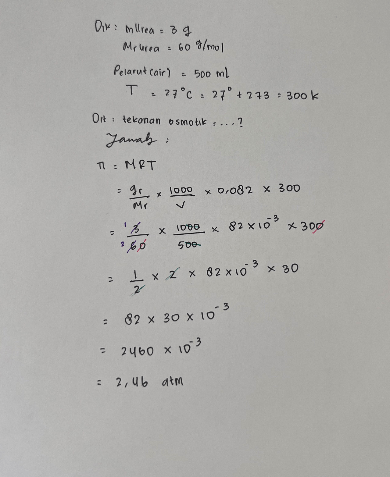 Dik : mUrea = 3 g
Mr urea = 60 g/mol
Pelarut (air) = 500 ml
T = 27°C = 27° + 273 = 300 k
Dit : tekanan osmotik = ...?
Jawab :
π = MRT
= gr/Mr × 1000/V × 0,082 × 300
= 1 3/2 60 × 1000/500 × 82 × 10⁻³ × 300
= 1/2 × 2 × 82 × 10⁻³ × 30
= 82 × 30 × 10⁻³
= 2460 × 10⁻³
= 2,46 atm